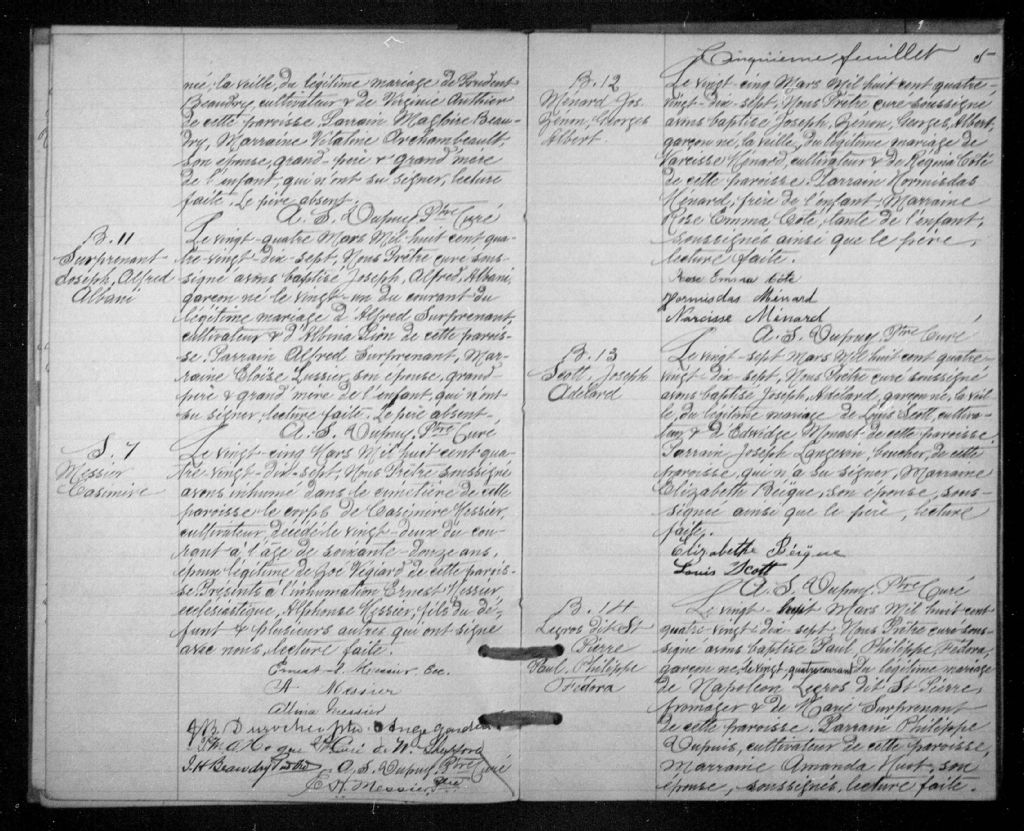 né, la veille, du légitime mariage de Prudent
Beaudry, cultivateur & de Virginie Authier
de cette paroisse. Parrain Magloire Beau-
dry, Marraine Vitaline Archambeault,
son épouse, grand-père & grand'mère
de l'enfant, qui n'ont su signer, lecture
faite. Le père absent.
A. S. Dupuy, Ptre Curé
B. 11
Surprenant
Joseph, Alfred
Albani
Le vingt-quatre Mars Mil huit cent qua-
tre-vingt-dix-sept, Nous Prêtre curé sous-
signé avons baptisé Joseph, Alfred, Albani,
garçon né le vingt-un du courant du
légitime mariage d'Alfred Surprenant,
cultivateur & d'Albina Lion de cette parois-
se. Parrain Alfred Surprenant, Mar-
raine Eloïse Lussier, son épouse, grand-
père & grand'mère de l'enfant, qui n'ont
su signer, lecture faite. Le père absent-
A. S. Dupuy, Ptre Curé
S. 7
Messier
Casimire
Le vingt-cinq Mars Mil huit cent qua-
tre vingt-dix-sept, Nous Prêtre soussigné
avons inhumé dans le cimetière de cette
paroisse le corps de Casimire Messier,
cultivateur, décédé le vingt-deux du cou-
rant à l'âge de soixante-douze ans,
époux légitime de Zoé Végiard de cette parois-
se. Présents à l'inhumation Ernest Messier,
ecclésiastique, Alphonse Messier, fils du dé-
funt & plusieurs autres qui ont signé
avec nous, lecture faite.
Ernest Messier Ecc.
A Messier
Albina Messier
Durocher ptre
J.H Beaudry Ptre
A. S. Dupuy, Ptre Curé
E H. Messier, Ptre
Cinquième feuillet 5
B. 12
Ménard Jos.
Zénon, Georges
Albert.
Le vingt-cinq Mars Mil huit cent quatre-
vingt-dix-sept, Nous Prêtre curé soussigné
avons baptisé Joseph, Zénon, Georges, Albert,
garçon né, la veille, du légitime mariage de
Narcisse Ménard, cultivateur & de Régina Coté
de cette paroisse. Parrain Hormisdas
Ménard, frère de l'enfant, Marraine
Rose Emma Coté, tante de l'enfant,
soussignés ainsi que le père,
lecture faite.
Rose Emma Côte
Hormisdas Ménard
Narcisse Ménard
A. S. Dupuy, Ptre Curé
B. 13
Scott, Joseph
Adélard
Le vingt-sept Mars Mil huit cent quatre-
vingt-dix-sept, Nous Prêtre curé soussigné
avons baptisé Joseph, Adélard, garçon né, la veil-
le, du légitime mariage de Louis Scott, cultiva-
teur & d'Edwidge Monast de cette paroisse.
Parrain Joseph Langevin, boucher, de cette
paroisse, qui n'a su signer, Marraine
Elizabeth Béïque, son épouse, sous-
signée ainsi que le père, lecture
faite.
Elizabethe Béïque
Louis Scott
A. S. Dupuy, Ptre Curé
B. 14
Legros dit St
Pierre
Paul Philippe
Fédora
Le vingt sept Mars Mil huit cent
quatre-vingt-dix-sept, Nous Prêtre curé sous-
signé avons baptisé Paul, Philippe, Fédora,
garçon né, le vingt quatre courant du légitime mariage
de Napoléon Legros dit St Pierre,
fromager & de Marie Surprenant
de cette paroisse. Parrain Philippe
Dupuis, cultivateur de cette paroisse,
Marraine Amanda Huot, son
épouse, soussignés, lecture faite.